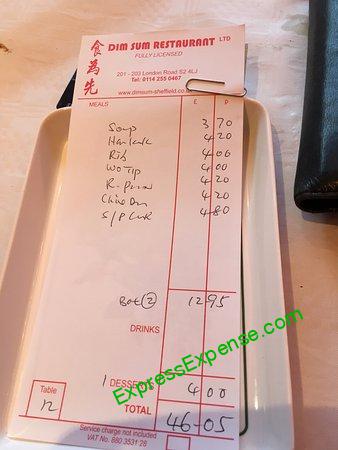 食為先
DIM SUM RESTAURANT LTD
FULLY LICENSED
201 - 203 London Road S2 4LJ
Tel: 0114 255 0467
www.dimsum-sheffield.co.
MEALS £ P
Soup 3 70
4 20
Rib 4 00
Wo Tip 4 00
4 20
4 20
S/P 4 80
Bat (2) 12 95
DRINKS
1 DESSERTS 4 00
Table
12
TOTAL 46-05
Service charge not included
VAT No. 880 3531 26
ExpressExpense.com